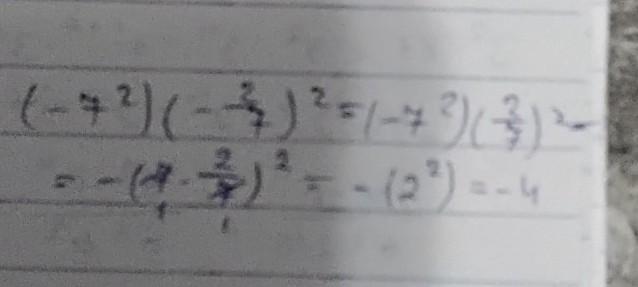 (-7²)(-2/7)² = (-7²)(2/7)² =
= -(7·2/7)² = -(2²) = -4